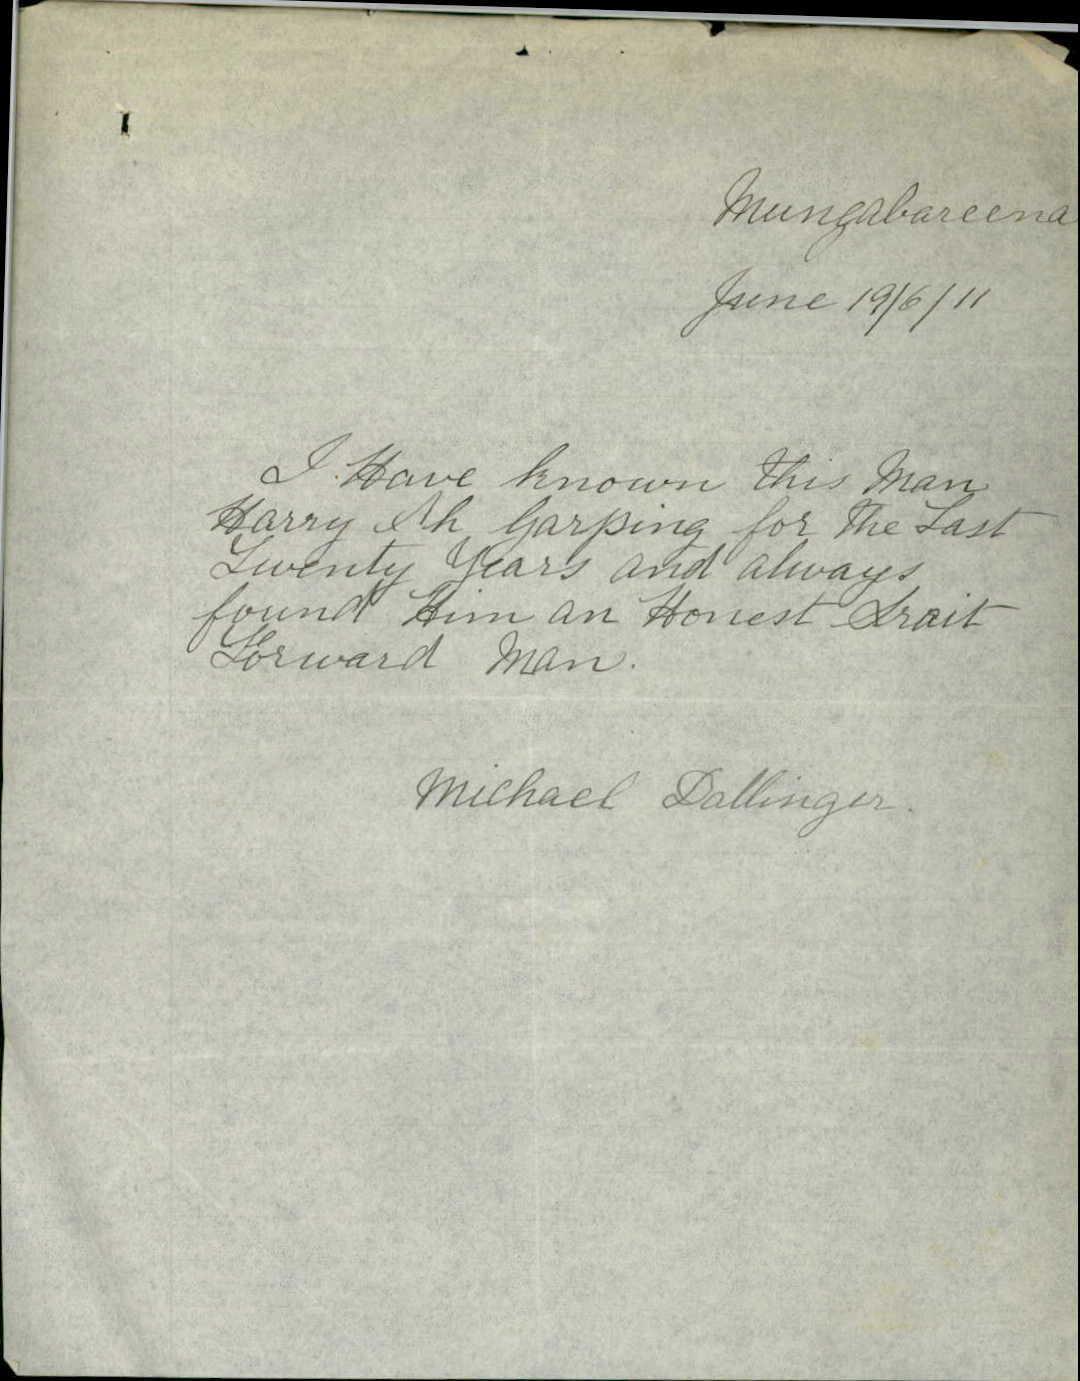 Mungabareena
June 19/6/11
I. Have known This Man
Harry Ah Garping for The Last
Twenty Years and always
found Him an Honest Strait
Forward Man.
Michael Dallinger.